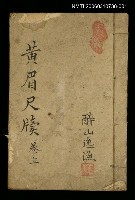 NMTL20060310730 001
黃眉尺牘 卷上
醉山逸漁